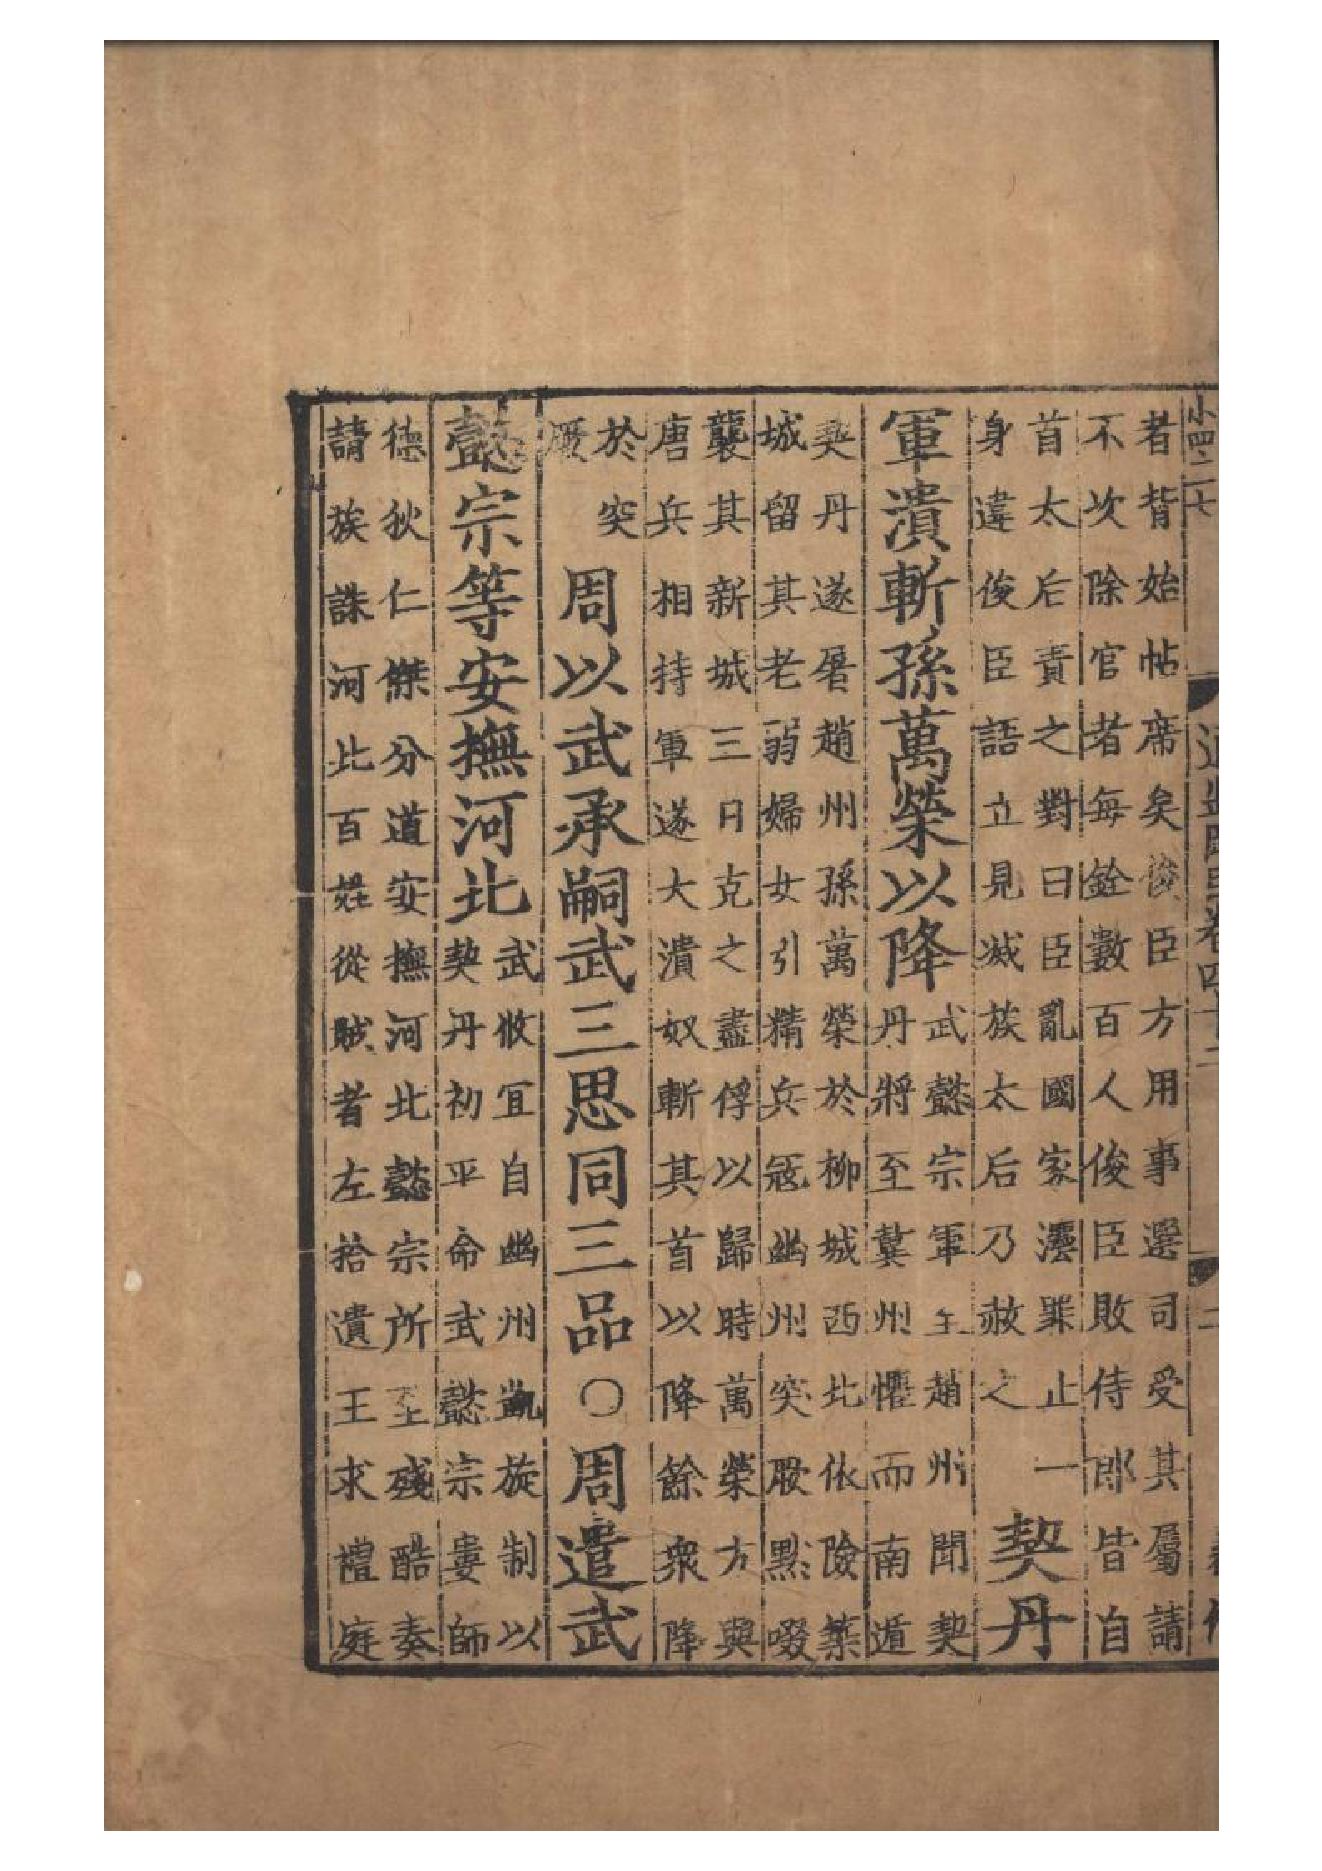 者皆始帖席矣俊臣方用事選司受其屬請
不次除官者每銓數百人俊臣敗侍郎皆自
首太后責之對曰臣亂國家灋罪止一
身違俊臣語立見滅族太后乃赦之
契丹
軍潰斬孫萬榮以降
武懿宗軍至趙州聞契
丹將至冀州懼而南遁
契丹遂屠趙州孫萬榮於柳城西北依險築
城留其老弱婦女引精兵寇幽州突厥黙啜
襲其新城三日克之盡俘以歸時萬榮方與
唐兵相持軍遂大潰奴斬其首以降餘衆降
於突
厥
周以武承嗣武三思同三品○周遣武
懿宗等安撫河北
武攸宜自幽州凱旋制以
契丹初平命武懿宗婁師
德狄仁傑分道安撫河北懿宗所至殘酷奏
請族誅河北百姓從賊者左拾遺王求禮庭